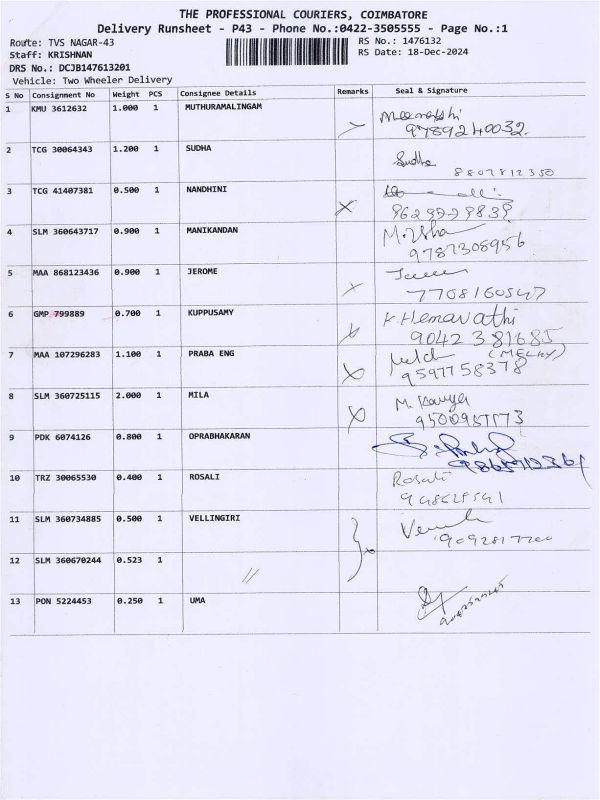 THE PROFESSIONAL COURIERS, COIMBATORE
Delivery Runsheet - P43 - Phone No.:0422-3505555 - Page No.:1
Route: TVS NAGAR-43 RS No.: 1476132
Staff: KRISHNAN RS Date: 18-Dec-2024
DRS No.: DCJB147613201
Vehicle: Two Wheeler Delivery
S No Consignment No Weight PCS Consignee Details Remarks Seal & Signature
1 KMU 3612632 1.000 1 MUTHURAMALINGAM Meenakshi
9789240032
2 TCG 30064343 1.200 1 SUDHA Sudha
8807812350
3 TCG 41407381 0.500 1 NANDHINI
4 SLM 360643717 0.900 1 MANIKANDAN M.Usha
9787308956
5 MAA 868123436 0.900 1 JEROME
7708160547
6 GMP 799889 0.700 1 KUPPUSAMY K.Hemavathi
9042381685
7 MAA 107296283 1.100 1 PRABA ENG (MELKY)
9597758378
8 SLM 360725115 2.000 1 MILA M. Kavya
9 PDK 6074126 0.800 1 OPRABHAKARAN
10 TRZ 30065530 0.400 1 ROSALI Rosali
11 SLM 360734885 0.500 1 VELLINGIRI
12 SLM 360670244 0.523 1 //
13 PON 5224453 0.250 1 UMA